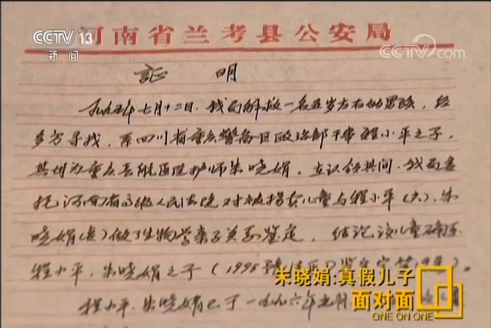 CCTV 13
新闻
河南省兰考县公安局
央视网
证 明
一九九五年七月十二日,我局解救一名五岁左右的男孩,经
多方寻找,系四川省重庆警备区政治部干事程小平之子,
其母为重庆长航医院护师朱晓娟,在认领其间,我局委
托河南省高级人民法院对被拐卖儿童与程小平(父)、朱
晓娟(母)做了生物学亲子关系鉴定,结论该儿童确系
程小平、朱晓娟之子
程小平、朱晓娟已于一九九六年元月
朱晓娟:真假儿子
面对面
ONE ON ONE